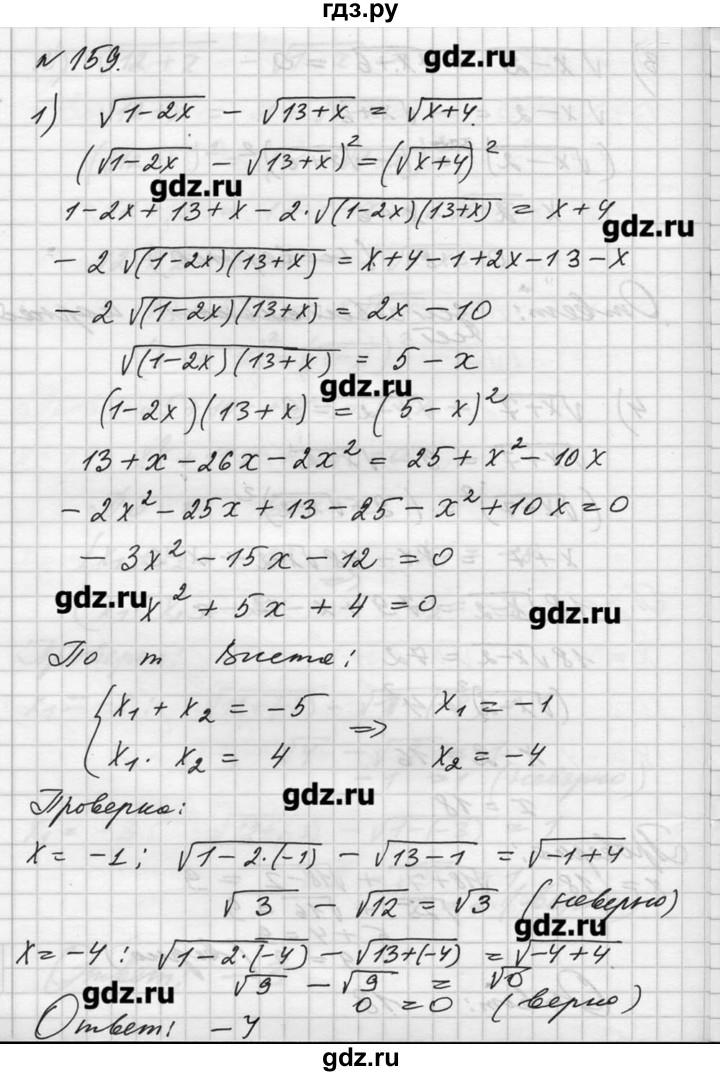 гдз.ру
gdz.ru
№ 159.
1) √(1-2x) - √(13+x) = √(x+4)
(√(1-2x) - √(13+x))² = (√(x+4))²
gdz.ru
1-2x+13+x-2·√((1-2x)(13+x)) = x+4
gdz.ru
-2√((1-2x)(13+x)) = x+4-1+2x-13-x
-2√((1-2x)(13+x)) = 2x-10
√((1-2x)(13+x)) = 5-x
gdz.ru
(1-2x)(13+x) = (5-x)²
13+x-26x-2x² = 25+x²-10x
-2x²-25x+13-25-x²+10x=0
-3x²-15x-12=0
gdz.ru
x²+5x+4=0
gdz.ru
По т Виета:
{x₁+x₂=-5 => x₁=-1
x₁·x₂=4 x₂=-4
gdz.ru
Проверка:
x=-1; √(1-2·(-1)) - √(13-1) = √(-1+4)
√3 - √12 = √3 (неверно)
gdz.ru
x=-4: √(1-2·(-4)) - √(13+(-4)) = √(-4+4)
√9 - √9 = √0
gdz.ru
0=0 (верно)
Ответ: -4
gdz.ru